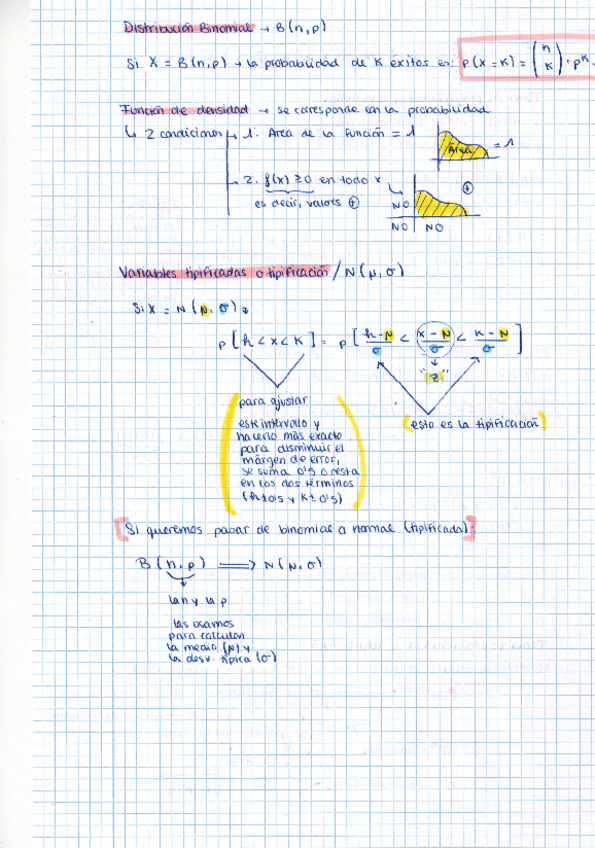 Distribución Binomial → B(n,p)
Si X = B(n,p) → la probabilidad de K éxitos es: p(x=k) = (n k) · pᴷ·
Función de densidad → se corresponde con la probabilidad
↳ 2 condiciones → 1. Área de la función = 1
Área = 1
→ 2. f(x) ≥ 0 en todo x
es decir, valores ⊕
⊕
NO
NO | NO
Variables tipificadas o tipificación / N(μ,σ)
Si X = N(μ,σ)
p[h < x < k] = p[(h-μ)/σ < (x-μ)/σ < (k-μ)/σ]
"Z"
para ajustar
este intervalo y
hacerlo más exacto
para disminuir el
márgen de error,
se suma 0'5 o resta
en los dos términos
(h±0'5 y K±0'5)
(esto es la tipificación)
[Si queremos pasar de binomial a normal (tipificada)]
B(n,p) ⟹ N(μ,σ)
La n y la p
las usamos
para calcular
la media (μ) y
la desv. típica (σ)